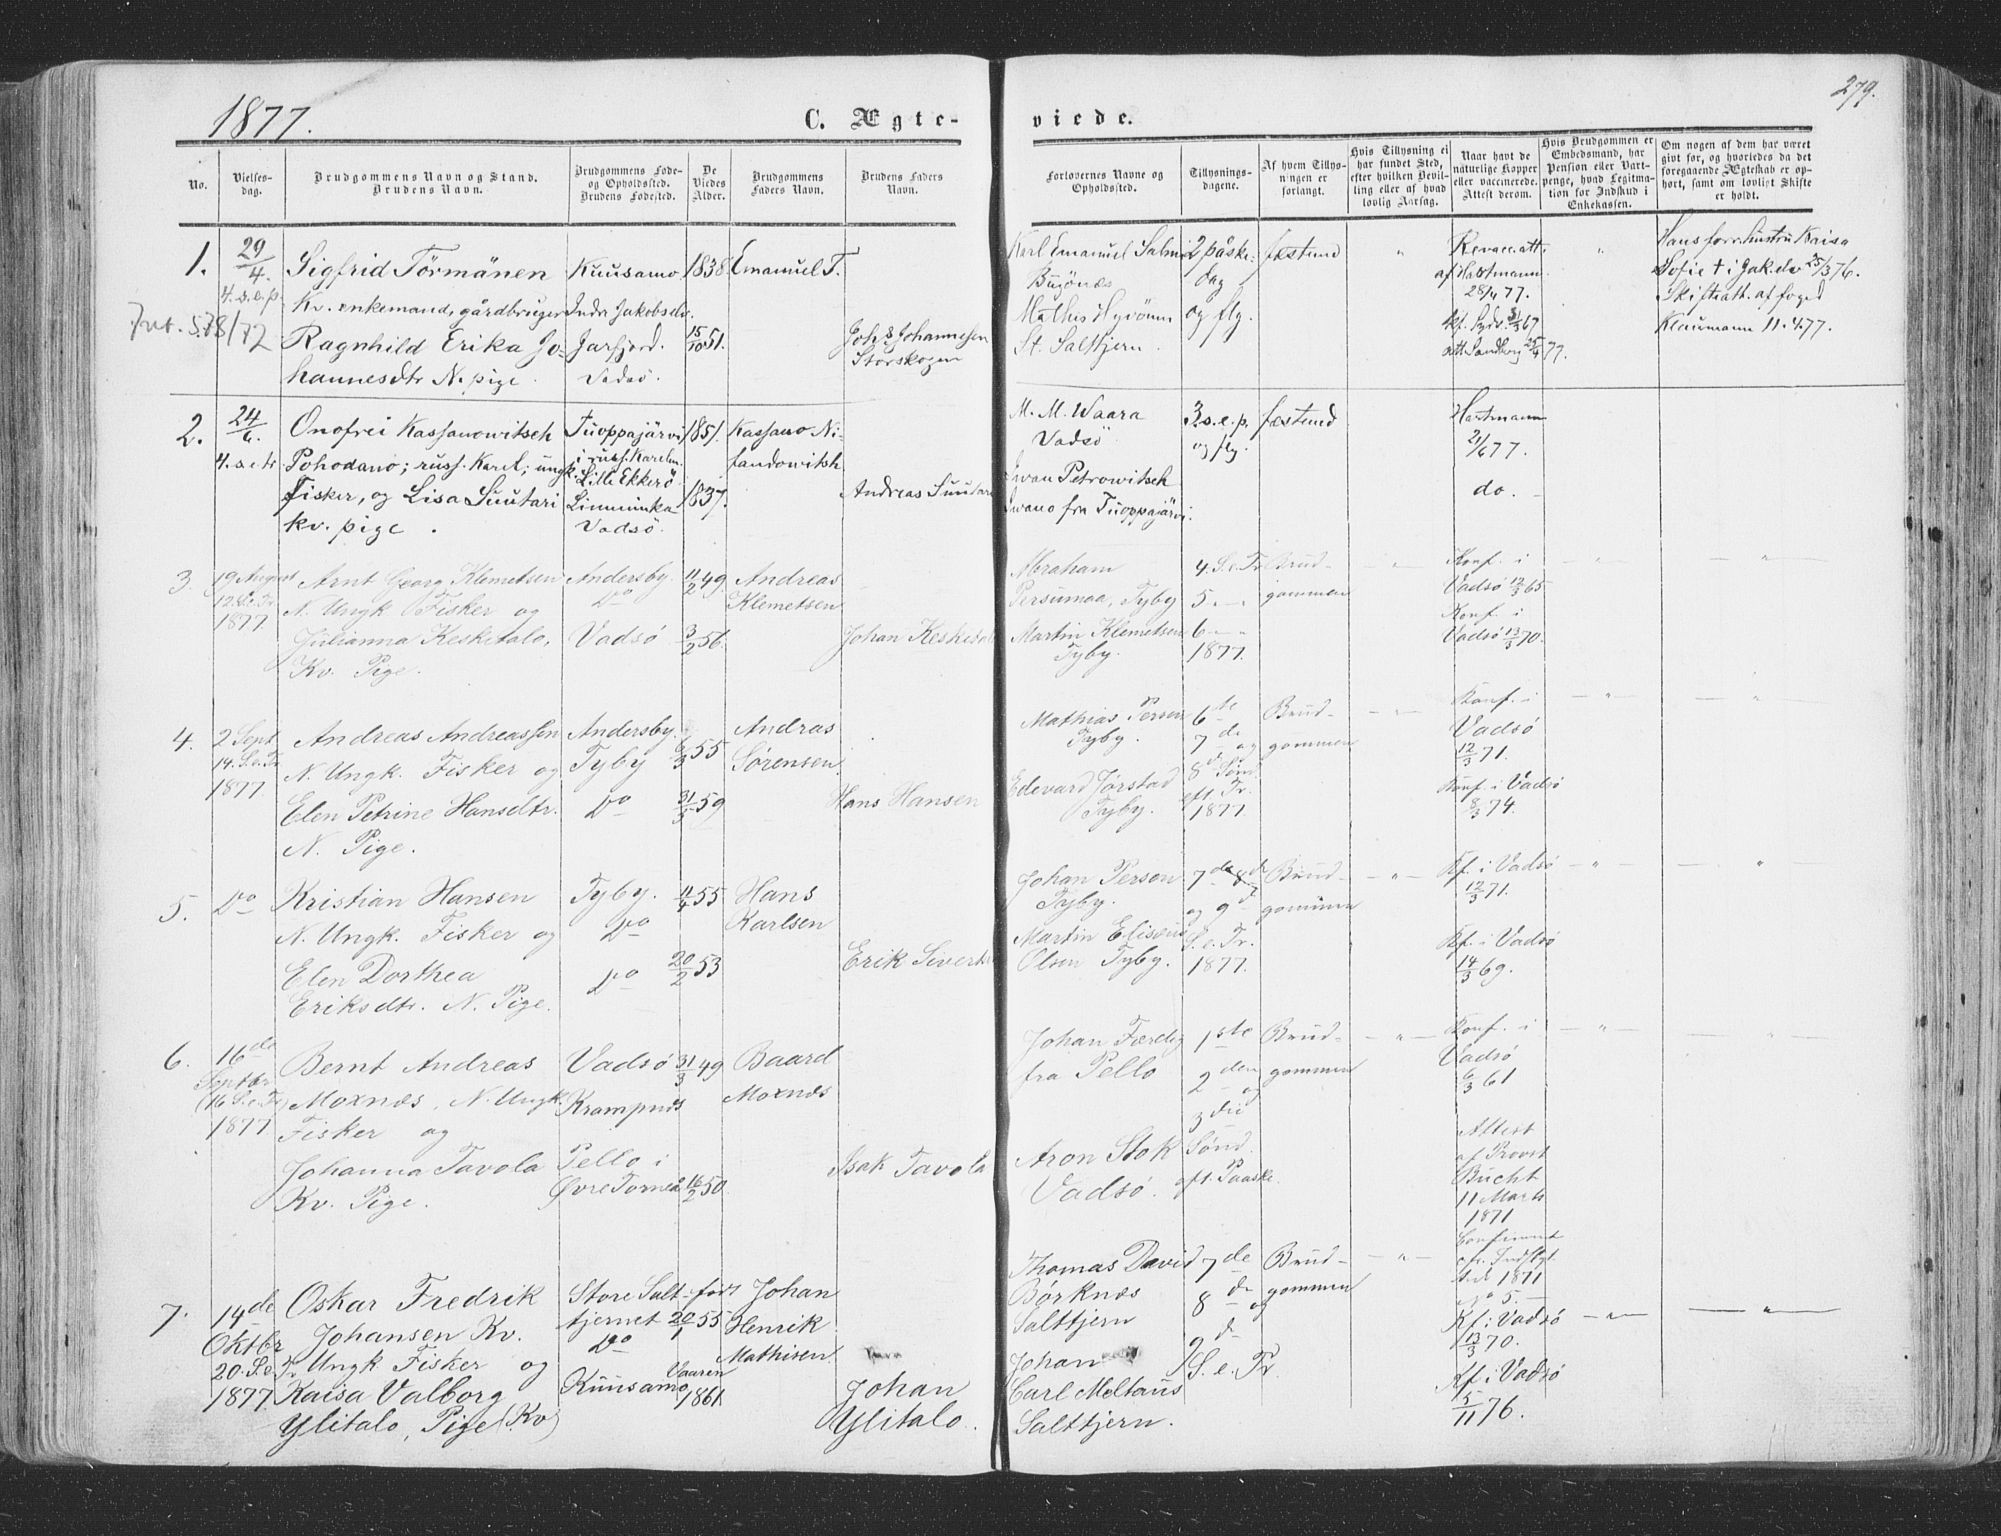 1877.
C. Ægte-
viede.
279.
No.
Vielses-
dag.
Brudgommens Navn og Stand.
Brudens Navn.
Brudgommens Føde-
og Opholdssted.
Brudens Fødested.
De
Viedes
Alder.
Brudgommens
Faders Navn.
Brudens Faders
Navn.
Forlovernes Navne og
Opholdssted.
Tillysnings-
dagene.
Af hvem Tillys-
ningen er
forlangt.
Hvis Tillysning ei
har fundet Sted,
efter hvilken Bevil-
ling eller af hvad
lovlig Aarsag.
Naar havt de
naturlige Kopper
eller vaccinerede.
Attest derom.
Hvis Brudgommen er
Embedsmand, har
Pension eller Vart-
penge, hvad Legitima-
tion for Indskud i
Enkekassen.
Om nogen af dem har været
givt for, og hvorledes da det
foregaaende Ægteskab er op-
hørt, samt om lovligt Skifte
er holdt.
1.
29/4.
4. s. e. p.
Sigfrid Törmänen
Kv. enkemand, gårdbruger
Ragnhild Erika Jo-
hannesdtr N. pige.
Kuusamo
Indre Jakobselv.
Jarfjord.
Vadsö.
1838
15/10 51.
Emanuel T.
Johs Johannesen
Storskogen
Karl Emanuel Salmi
Bugönæs
Mathis Hyvönen
St. Saltbjern.
2 påske-
dag
og flg.
fæstemd
"
Revacc. att.
af Hartmann
28/4 77.
kf. Sydv. 31/3 67
att. Sandberg 25/4 77.
"
Hans forr. hustru Kaisa
Sofie † i Jak.elv 25/3 76.
Skifteatt. af foged
Klaumann 11.4.77.
2.
24/6.
4. s. e. tr.
Onofrei Kassanowitsch
Pohodano; russ. Karel; ungk.
fisker, og Lisa Suutari
kv. pige.
Tuoppajärvi
i russ. Karelen.
Lille Ekkerö
Liminnka
Vadsö.
1851.
1837.
Kassano Ni-
fandowitsh
Andreas Suutari
M. M. Waara
Vadsö
Iwan Petrowitsch
Iwano fra Tuoppajärvi.
3. s. e. p.
og flg.
fæstemd
Hartmann
21/6 77.
do.
3.
19 August
12 S. e. Tr.
1877.
Arnt Georg Klemetsen
N. Ungk Fisker og
Julianna Kesketalo,
Kv. Pige.
Andersby
Do
Vadsø
11/2 49
3/2 56
Andreas
Klemetsen
Johan Kesketalo
Abraham
Persumaa, Tyby
Martin Klemetsen
Tyby.
4. S. e. Tr
5 — "
6 — "
1877.
Brud-
gommen
— " —
Konf. i
Vadsø 12/3 65
Konf. i
Vadsø 13/3 70.
— " —
— " —
4.
2 Sept
14. S. e. Tr
1877.
Andreas Andreassen
N. Ungk. Fisker og
Elen Petrine Hansdtr.
N. Pige.
Andersby.
Tyby
Do
6/3 55
31/3 59
Andras
Sørensen.
Hans Hansen
Mathias Persen
Tyby.
Edevard Jørstad
Tyby.
6te
7de og
8de Sønd.
eft. Tr.
1877.
Brud-
gommen
— " —
Konf. i
Vadsø
12/3 71.
Konf. i Vadsø
8/3 74.
— " —
— " —
5.
Do
Kristian Hansen
N. Ungk. Fisker og
Elen Dorthea
Eriksdtr. N. Pige.
Tyby.
Do
Do
11/4 55
20/2 53
Hans
Karlsen
Erik Severts
Johan Persen
Tyby.
Martin Elisæus
Olsen Tyby.
7de 8de
og 9de
S. e. Tr.
1877.
Brud-
gommen
— " —
Kf. i Vadsø
12/3 71.
Kf. i Vadsø
14/3 69.
— " —
"
6.
16de
Septbr
(16 S. e. Tr)
1877
Bernt Andreas
Moxnæs, N. Ungk.
Fisker og
Johanna Tavola
Kv. Pige.
Vadsø
Krampnæs
Pello i
Øvre Torneå
31/3 49
16/2 50
Baard
Moxnæs
Isak Tavola
Johan Færdig
fra Pello
Aron Stok
Vadsø.
1ste
2den
og
3die
Sønd.
eft. Paaske.
Brud-
gommen
— " —
Konf. i
Vadsø
6/3 61
Attest
af Provst
Bucht
11 Marts
1871
— " —
— " —
7.
14de
Oktbr
20. S. e. Tr
1877
Oskar Fredrik
Johansen Kv.
Ungk Fisker og
Kaisa Valborg
Ylitalo, Pige (Kv)
Store Salt-
tjernet
Do
Kuusamo
født
20/1 55
Vaaren
1861
Johan
Henrik
Mathisen
Johan
Ylitalo.
Thomas David
Børknæs
Salttjern
Johan
Carl Meltaus
Salttjern.
7de
8de
og
9de
S. e. Tr
Brud-
gommen
— " —
1871
Kf. i Vadsø
13/3 70.
Kf. i Vadsø
5/11 76.
— " —
— " —